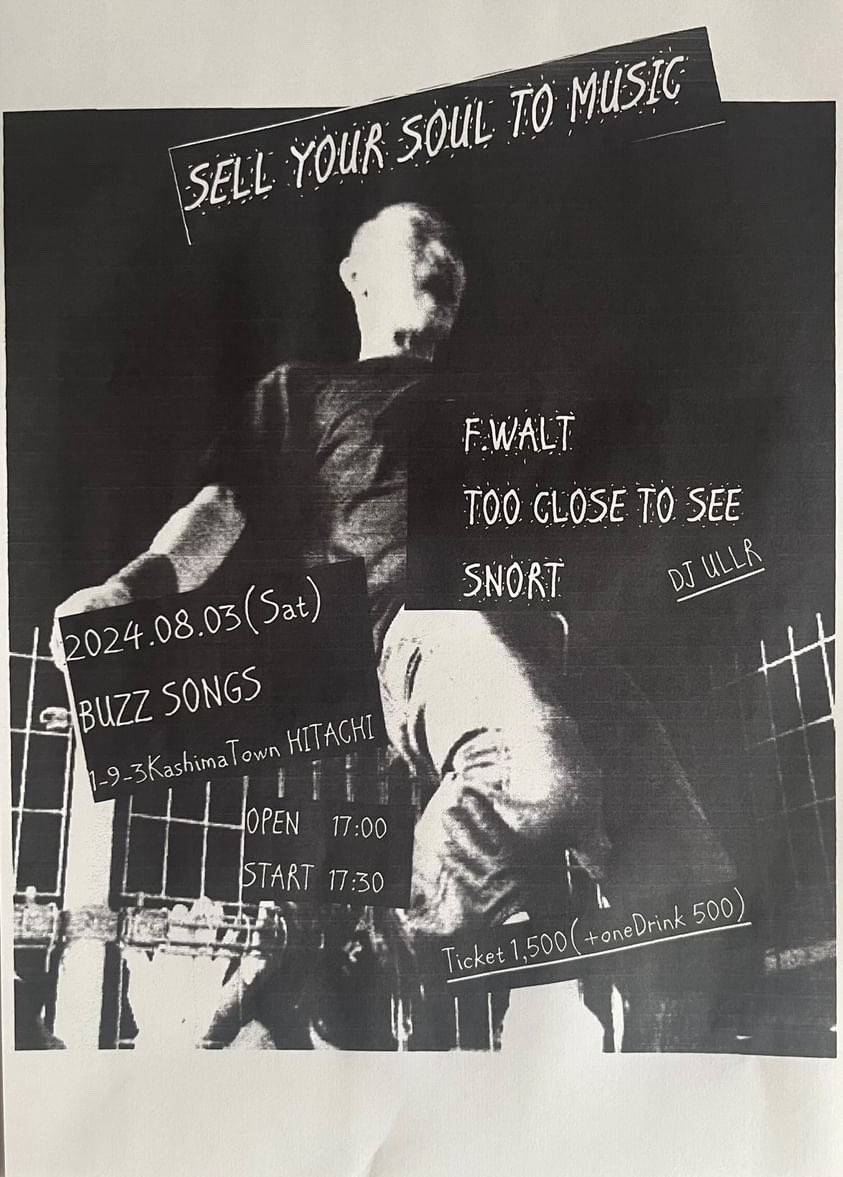 SELL YOUR SOUL TO MUSIC
F.WALT
TOO CLOSE TO SEE
SNORT
DJ ULLR
2024.08.03(Sat)
BUZZ SONGS
1-9-3KashimaTown HITACHI
OPEN 17:00
START 17:30
Ticket 1,500(+oneDrink 500)